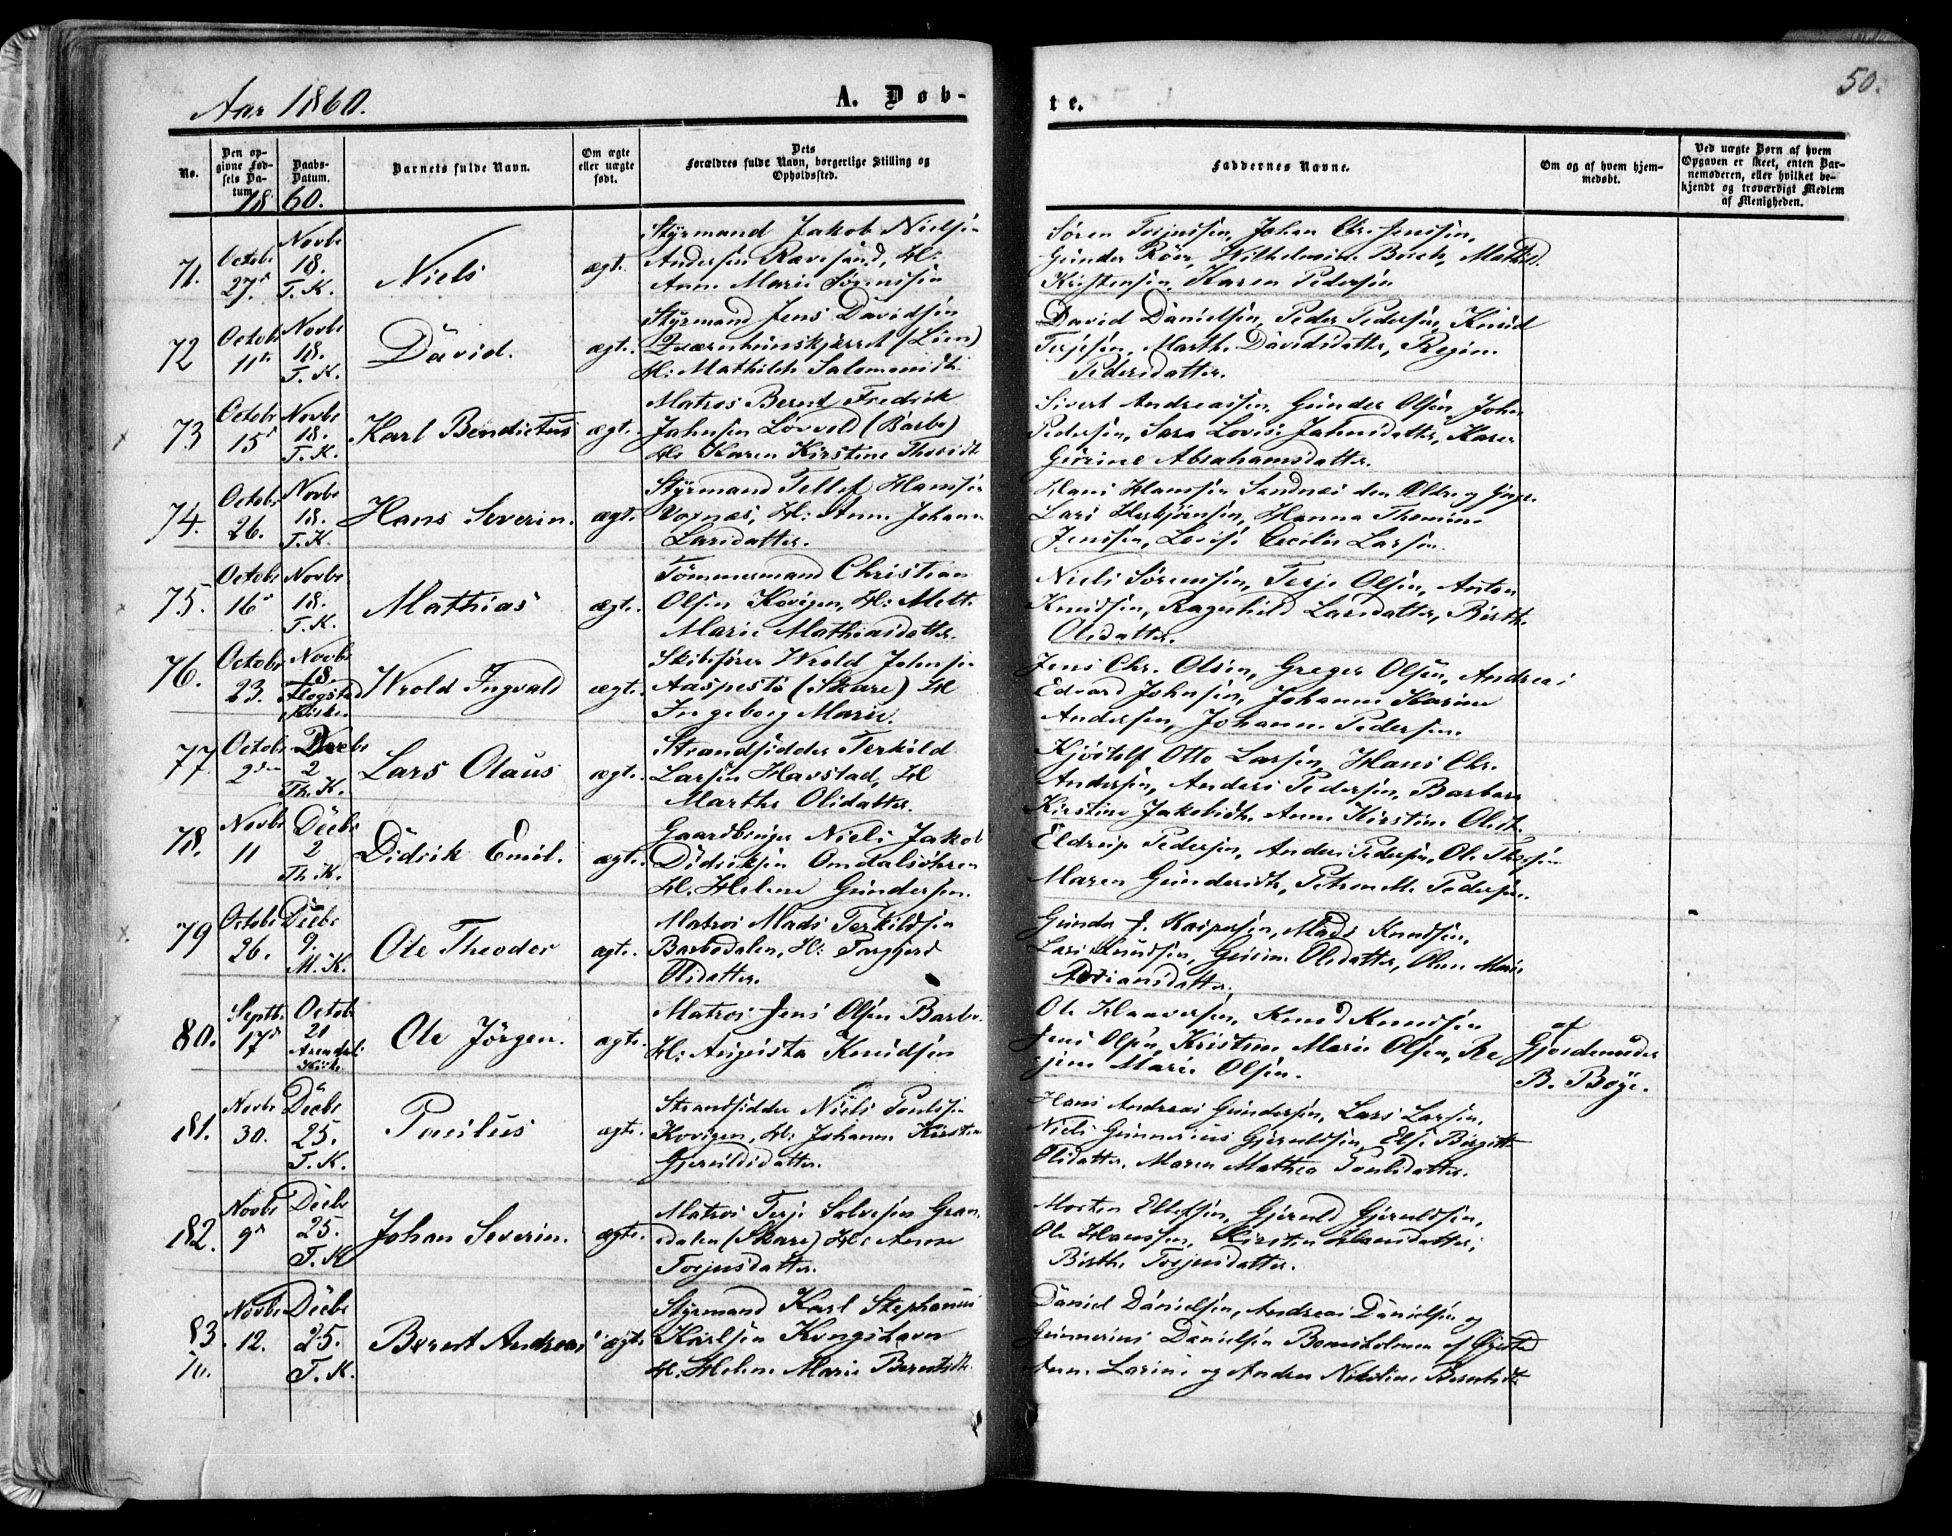 Aar 1860.
A. Döb-
te.
50.
No.
Den op-
givne Fød-
sels Da-
tum.
Daabs-
Datum.
Barnets fulde Navn.
Om ægte
eller uægte
født.
Dets
Forældres fulde Navn, borgerlige Stilling og
Opholdssted.
Faddernes Navne.
Om og af hvem hjem-
medøbt.
Ved uægte Børn af hvem
Opgaven er skeet, enten Bar-
nemoderen, eller hvilket be-
kjendt og troværdigt Medlem
af Menigheden.
1860.
71.
Octobr
27de
Novbr
18.
T. K.
Niels
ægte.
Styrmand Jakob Nielsen
Andersen Ravesand, H:
Anne Marie Sørensen
Søren Torjussen, Johan Chr. Jenssen,
Gunder Röer, Wilhelmine Buch, Mathild.
Kristensen, Karen Pedersen
72
Octobr
11te
Novbr
18.
T. K.
David.
ægte.
Styrmand Jens Davidsen
Qværnhuuskjærret (Lien)
H: Mathilde Salomonsdtr.
David Danielsen, Peder Pedersen, Knud
Terjesen, Marthe Davidsdatter, Regine
Pedersdatter.
73
Octobr
15de
Novbr
18.
T. K.
Karl Bendictus
ægte.
Matros Berent Fredrik
Jahnsen Lövold (Barbo)
H: Karen Kirstine
Sivert Andreassen, Gunder Olsen, John
Pedersen, Sara Lovise Jahnsdatter, Karen
Gurine Abrahamsdatter.
74.
Octobr
26.
Novbr
18.
T. K.
Hans Severin.
ægte.
Styrmand Tellef Hansen
Voxnæs, H: Anne Johanne
Larsdatter.
Hans Hanssen Sandnæs den Ældre og Yngre
Lars Herbjørnsen, Hanna Thomine
Jenssen, Lovise Cecilie Larsen.
75.
Octobr
16de
Novbr
18.
T. K.
Mathias
ægte.
Tömmermand Christian
Olsen Kovigen, H: Mette
Marie Mathiasdatter.
Niels Sørenssen, Terje Olsen, Anton
Knudsen, Ragnhild Larsdatter, Birthe
Olsdatter.
76.
Octobr
23.
Novbr
18.
Flogstad
Kirke
Wrold Ingvald
ægte.
Skibsfører Wrold Johnsen
Aaspestø (Skare) H
Ingeborg Marie.
Jens Chr. Olsen, Greger Olsen, Andreas
Edvard Johnsen, Johanne Karine
Andersen, Johanne Pedersen.
77.
Octobr
2den
Decbr
2
Th. K.
Lars Olaus
ægte.
Strandsidder Terkild
Larsen Havstad, H
Marthe Olsdatter.
Kjöstolf Otto Larsen, Hans Chr.
Andersen, Anders Pedersen, Barbara
Kirstine Jakobsdtr., Anne Kirstine Olsdtr.
78.
Novbr
11
Decbr
2
Th. K.
Didrik Emil.
ægte.
Gaardbruger Niels Jakob
Didriksen Omdalsöhren
H. Helene Gundersen.
Eldrup Pedersen, Anders Pedersen, Ole
Maren Gundersdtr., Petronelle Pedersen.
79
Octobr
26.
Decbr
9.
M. K.
Ole Theodor
ægte.
Matros Mads Terkildsen
Barbodalen, H: Torgjerd
Olsdatter.
Gunder J. Kaspersen, Mads Knudsen,
Lars Knudsen, Gurine Olsdatter, Oline Marie
Adriansdatter.
80.
Septbr
17de
Octobr
21
Arendals
Kirke
Ole Jörgen.
ægte.
Matros Jens Olsen Barbo
H: Augusta Knudsen
Ole Haaversen, Knud Knudsen
Jens Olsen, Kristine Marie Olsen, Re
gine Marie Olsen.
af
Gjordemoder
B. Boye.
181.
Novbr
30.
Decbr
25.
T. K.
Paulus
ægte.
Strandsidder Niels Poulsen
Kovigen, H: Johanne Kirstine
Gjeruldsdatter.
Hans Andreas Gundersen, Lars Larsen,
Niels Gunnerius Gjeruldsen, Else Birgitte
Olsdatter, Maren Mathea Poulsdatter.
182.
Novbr
9de
Decbr
25.
T. K
Johan Severin.
ægte.
Matros Terje Salvesen Gran
dalen (Skare) H: Anne
Torjusdatter.
Morten Ellefsen, Gjeruld Gjeruldsen,
Ole Hanssen, Kirsten Hansdatter,
Birthe Torjusdatter.
83
Novbr
12.
Decbr
25.
T. K.
Berent Andreas
ægte.
Styrmand Karl Stephanus
Karlsen Kongshavn
H. Helene Marie Berntsdtr.
Daniel Danielsen, Andreas Danielsen og
Gunnerius Danielsen Bomsholmen af Øiestad
Anne Larine og Andrea Nikoline Berntsdtr